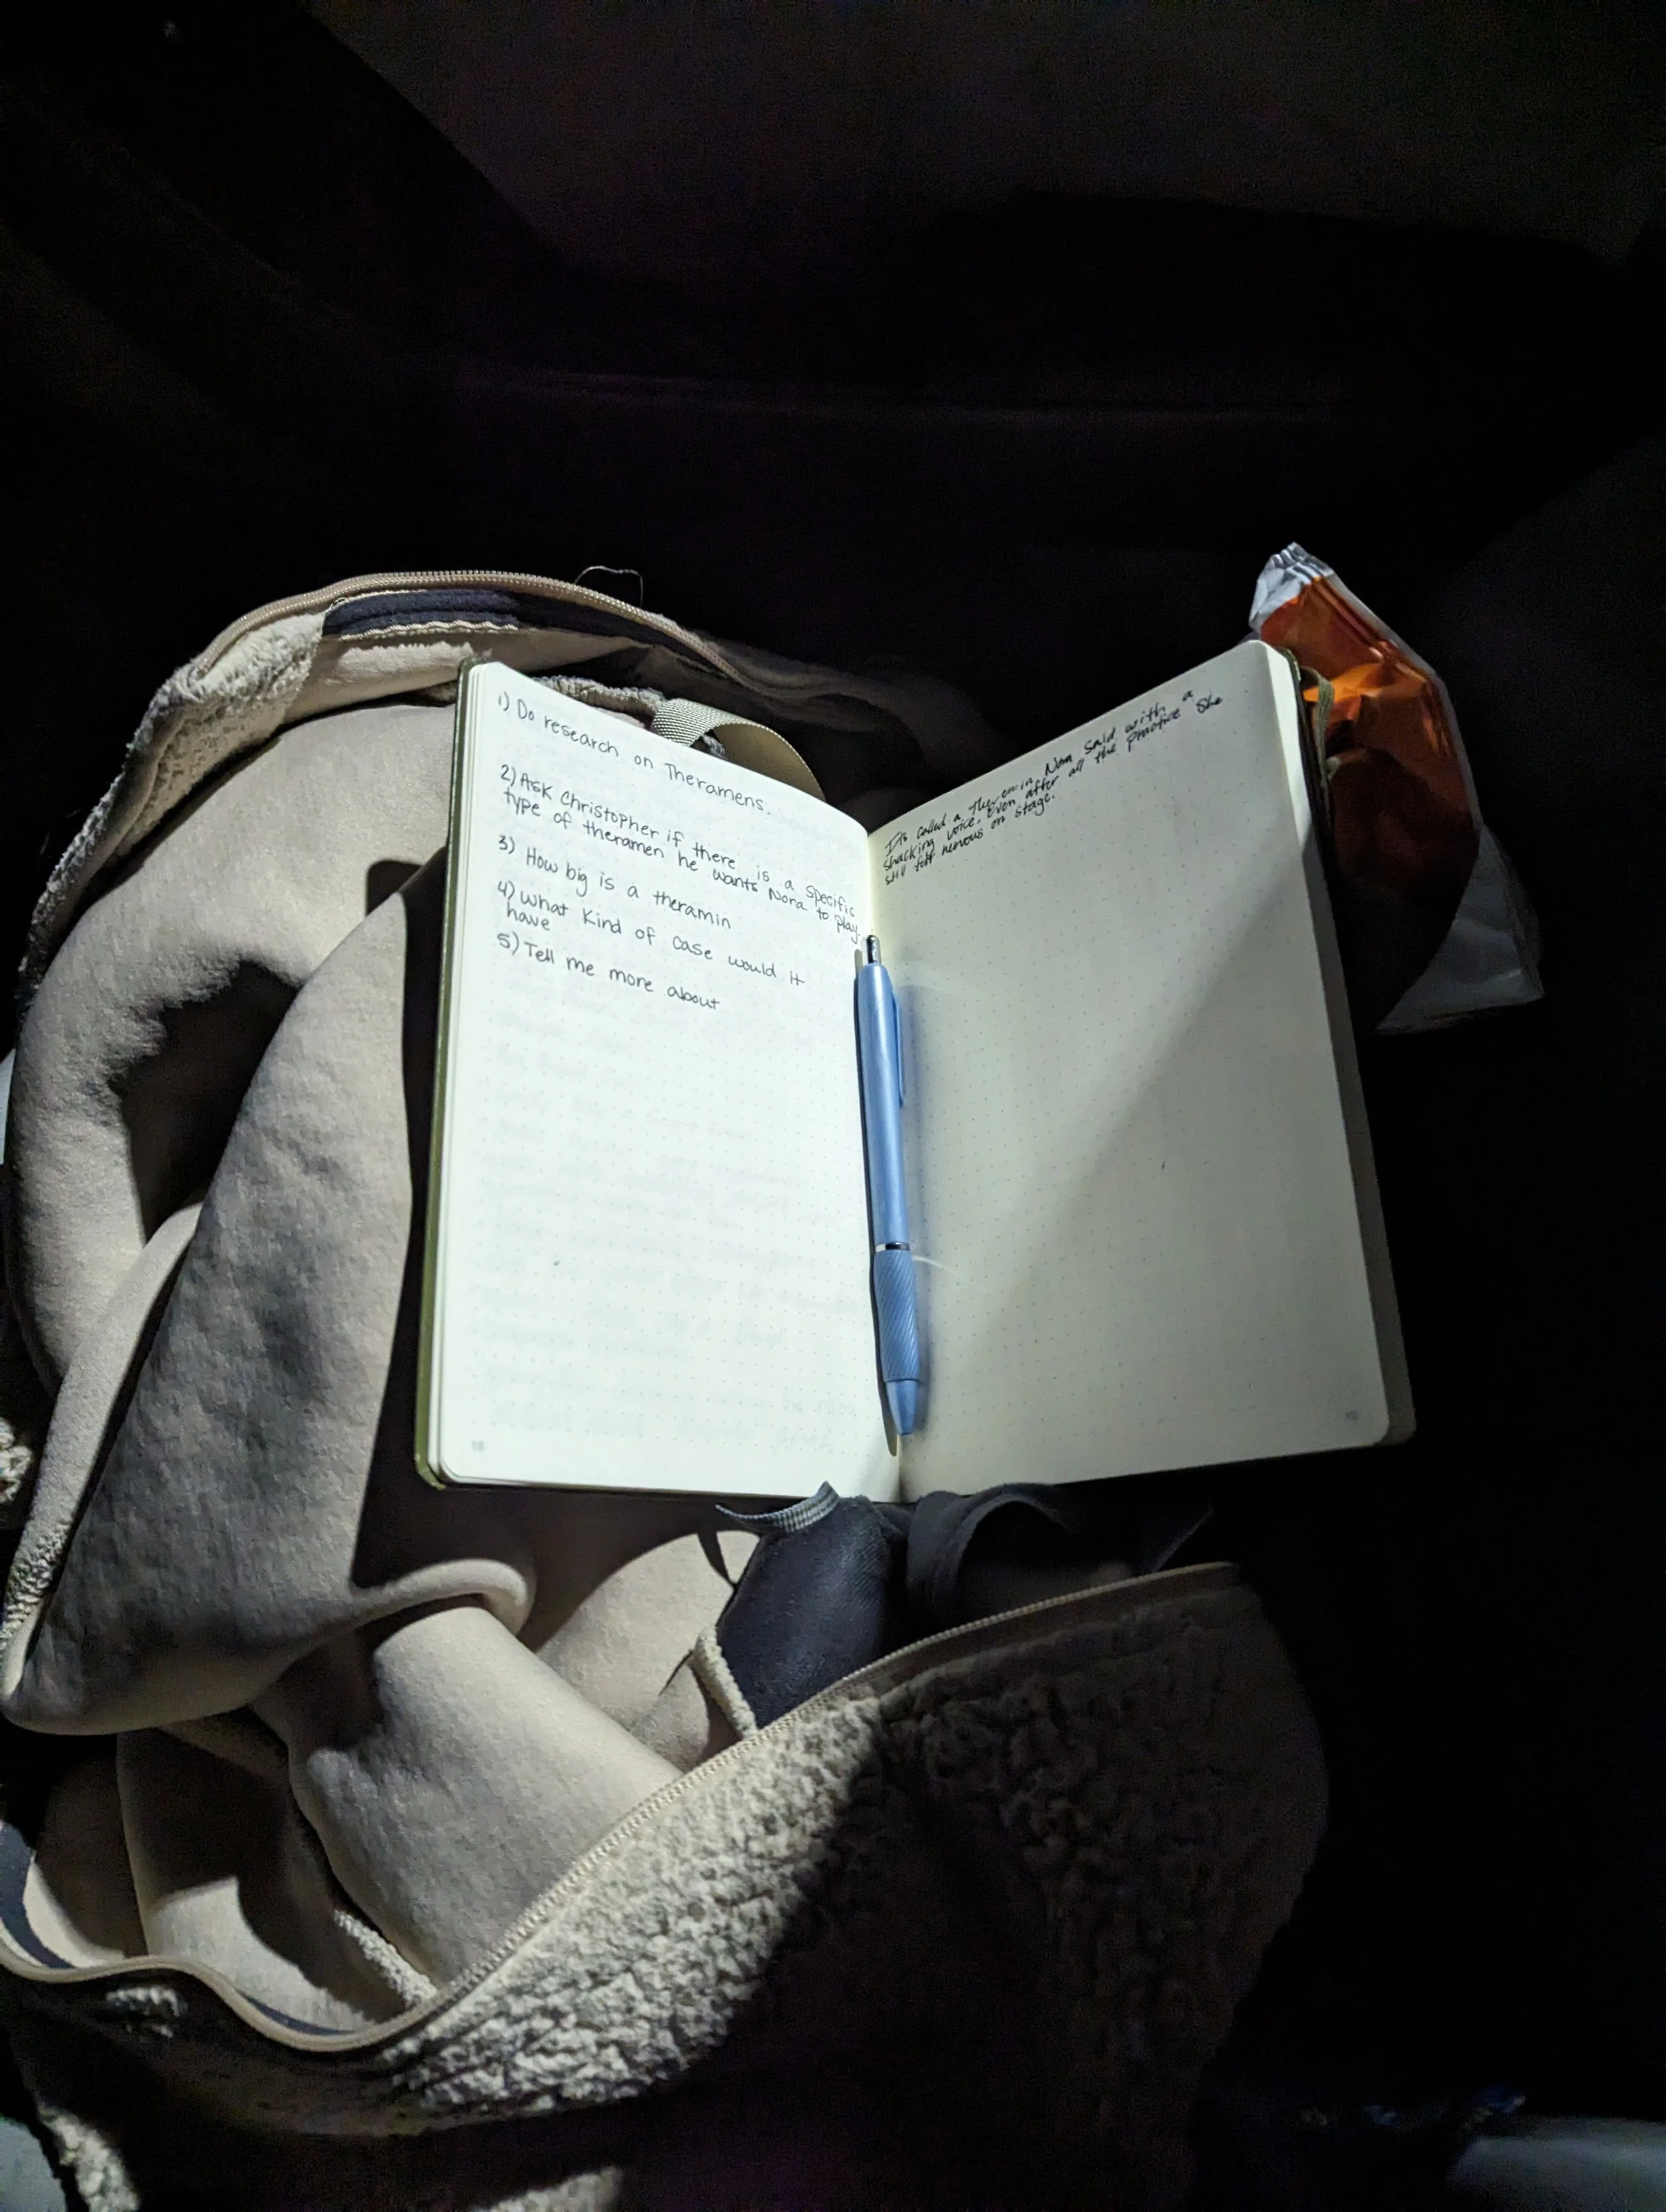 1) Do research on Theramens.
2) Ask Christopher if there is a specific
type of theramen he wants Nora to play.
3) How big is a theramin
4) what kind of case would it
have
5) Tell me more about
It's called a Theremin, Nora said with a
shacking voice. Even after all the practice she
still felt nervous on stage.
18